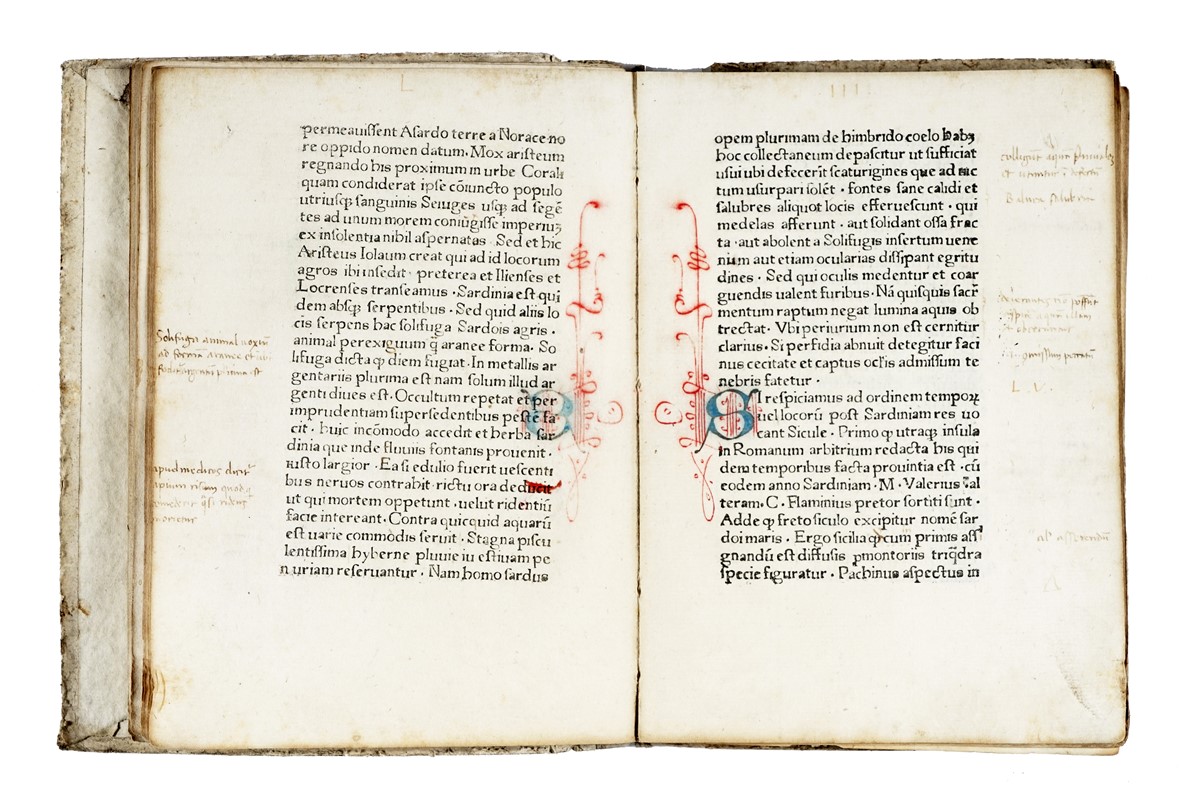 permeauissent A sardo terre a Norace no
re oppido nomen datum. Mox aristeum
regnando his proximum in urbe Corali
quam condiderat ipse cōiuncto populo
utriusqꝫ sanguinis Seiuges usqꝫ ad segē
tes ad unum morem coniugisse imperiuꝫ
ex insolentia nihil aspernatas. Sed et hic
Aristeus Iolaum creat qui ad id locorum
agros ibi insedit· preterea et Ilienses et
Locrenses transeamus · Sardinia est qui
dem absqꝫ serpentibus · Sed quid aliis lo
cis serpens hac solifuga Sardois agris ·
animal perexiguum q̄ aranee forma · So
lifuga dicta ꝙ diem fugiat · In metallis ar
gentariis plurima est nam solum illud ar
genti diues est · Occultum repetat et per
imprudentiam supersedentibus pestē fa
cit · huic incōmodo accedit et herba sar
dinia que inde fluuiis fontanis prouenit ·
iusto largior · Ea si edulio fuerit uescenti
bus neruos contrahit · rictu ora deducit
ut qui mortem oppetunt · uelut ridentiū
facie intereant · Contra quicquid aquarū
est uarie commodis seruit · Stagna piscu
lentissima hyberne pluuie iu estiuam pe
nuriam reseruantur · Nam homo sardus
Solifuga animal noxiū
ad formam aranee et
apud medicos dicitur
IIII
opem plurimam de himbrido coelo habꝫ
hoc collectaneum depascitur ut sufficiat
usui ubi defecerit scaturigines que ad hac
tum usurpari solēt · fontes sane calidi et
salubres aliquot locis efferuescunt · qui
medelas afferunt · aut solidant ossa frac
ta · aut abolent a Solifugis insertum uene
nium aut etiam ocularias dissipant egritu
dines · Sed qui oculis medentur et coar
guendis ualent furibus · Nā quisquis sacr̄
mentum raptum negat lumina aquis ob
trectat · Vbi periurium non est cernitur
clarius · Si perfidia abnuit detegitur faci
nus cecitate et captus oclis admissum te
nebris fatetur ·
SI respiciamus ad ordinem tempoꝝ
uel locorū post Sardiniam res uo
cant Sicule · Primo ꝙ utraqꝫ insula
in Romanum arbitrium redacta his qui
dem temporibus facta prouintia est · cū
eodem anno Sardiniam · M · Valerius al
teram · C · Flaminius pretor sortiti sunt ·
Adde ꝙ freto siculo excipitur nomē sar
doi maris · Ergo sicilia qꝫ cum primis assi
gnandū est diffusis ꝑmontoriis triq̄dra
specie figuratur · Pachinus aspectus in
Balnea salubria
L · V ·
al asserendū